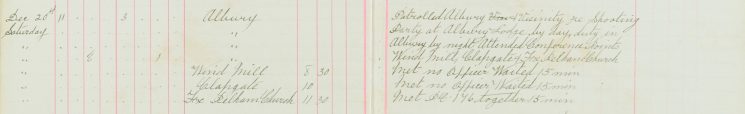 Dec 20th 11 " 3 " Albury Patrolled Albury Town & Vicinity re Shooting
Saturday " " " " " Party at Albury Lodge by day, duty in
" " " " " " Albury by night Attended Conference Points
" " 8 " " 1 " Wind Mill, Clapgate & Fx Pelham Church
" " " " " Wind Mill 8 30 Met no Officer Waited 15 min
" " " " " Clapgate 10 Met no Officer Waited 15 min
" " " " " Fx Pelham Church 11 30 Met PC 176, together 15 min